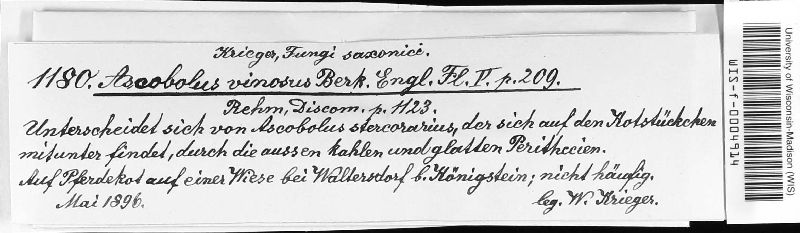 Krieger, Fungi saxonici.
1180. Ascobolus vinosus Berk. Engl. Fl. V. p. 209.
Rehm, Discom. p. 1123.
Unterscheidet sich von Ascobolus stercorarius, der sich auf den Kotstückchen
mitunter findet, durch die aussen kahlen und glatten Perithecien.
Auf Pferdekot auf einer Wiese bei Waltersdorf b. Königstein; nicht häufig.
Mai 1896. leg. W. Krieger.
WIS-f-0004914
University of Wisconsin-Madison (WIS)